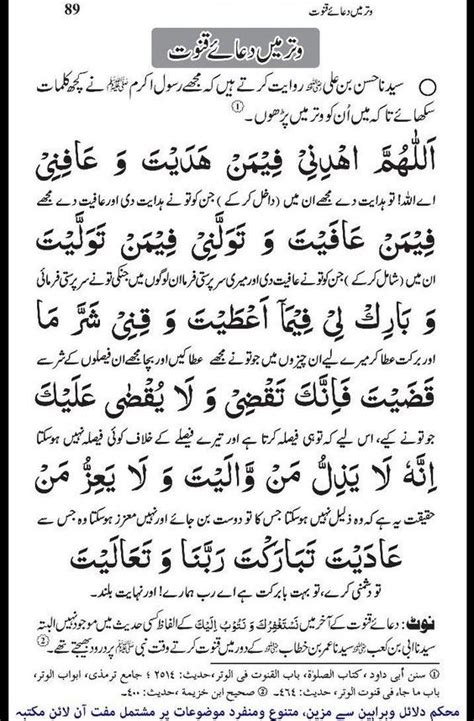 وتر میں دعائے قنوت 89
وتر میں دعائے قنوت
سیدنا حسن بن علی ؓ روایت کرتے ہیں کہ مجھے رسول اکرم ﷺ نے کچھ کلمات
سکھائے تاکہ میں اُن کو وتر میں پڑھوں۔①
اَللّٰهُمَّ اهْدِنِيْ فِيْمَنْ هَدَيْتَ وَ عَافِنِيْ
اے اللہ! تو ہدایت دے مجھے ان میں (داخل کر کے) جن کو تو نے ہدایت دی اور عافیت دے مجھے
فِيْمَنْ عَافَيْتَ وَ تَوَلَّنِيْ فِيْمَنْ تَوَلَّيْتَ
ان میں (شامل کر کے) جن کو تو نے عافیت دی اور میری سرپرستی فرما ان لوگوں میں جنکی تو نے سرپرستی فرمائی
وَ بَارِكْ لِيْ فِيْمَآ اَعْطَيْتَ وَ قِنِيْ شَرَّ مَا
اور برکت عطا کر میرے لیے ان چیزوں میں جو تو نے مجھے عطا کیں اور بچا مجھے ان فیصلوں کے شر سے
قَضَيْتَ فَاِنَّكَ تَقْضِيْ وَ لَا يُقْضٰى عَلَيْكَ
جو تو نے کیے، اس لیے کہ تو ہی فیصلہ کرتا ہے اور تیرے فیصلے کے خلاف کوئی فیصلہ نہیں ہوسکتا
اِنَّهٗ لَا يَذِلُّ مَنْ وَّالَيْتَ وَ لَا يَعِزُّ مَنْ
حقیقت یہ ہے کہ وہ ذلیل نہیں ہوسکتا جس کا تو دوست بن جائے اور نہیں معزز ہوسکتا وہ جس سے
عَادَيْتَ تَبَارَكْتَ رَبَّنَا وَ تَعَالَيْتَ
تو دشمنی کرے، تو بہت بابرکت ہے اے رب ہمارے! اور نہایت بلند۔
نوٹ: دعائے قنوت کے آخر میں نَسْتَغْفِرُكَ وَ نَتُوْبُ اِلَيْكَ کے الفاظ کسی حدیث میں موجود نہیں البتہ
سیدنا ابی بن کعب ؓ سیدنا عمر بن خطاب ؓ کے دور میں قنوت کرتے وقت نبی ﷺ پر درود بھیجتے تھے۔②
① سنن أبی داود، کتاب الصلوٰة، باب القنوت فی الوتر، حدیث: ۲۵۱۴؛ جامع ترمذی، ابواب الوتر،
باب ما جاء فی قنوت الوتر، حدیث: ٤٦٤۔ ② صحیح ابن خزیمة، حدیث: ٤٠٠۔
محکم دلائل وبراہین سے مزین، متنوع ومنفرد موضوعات پر مشتمل مفت آن لائن مکتبہ